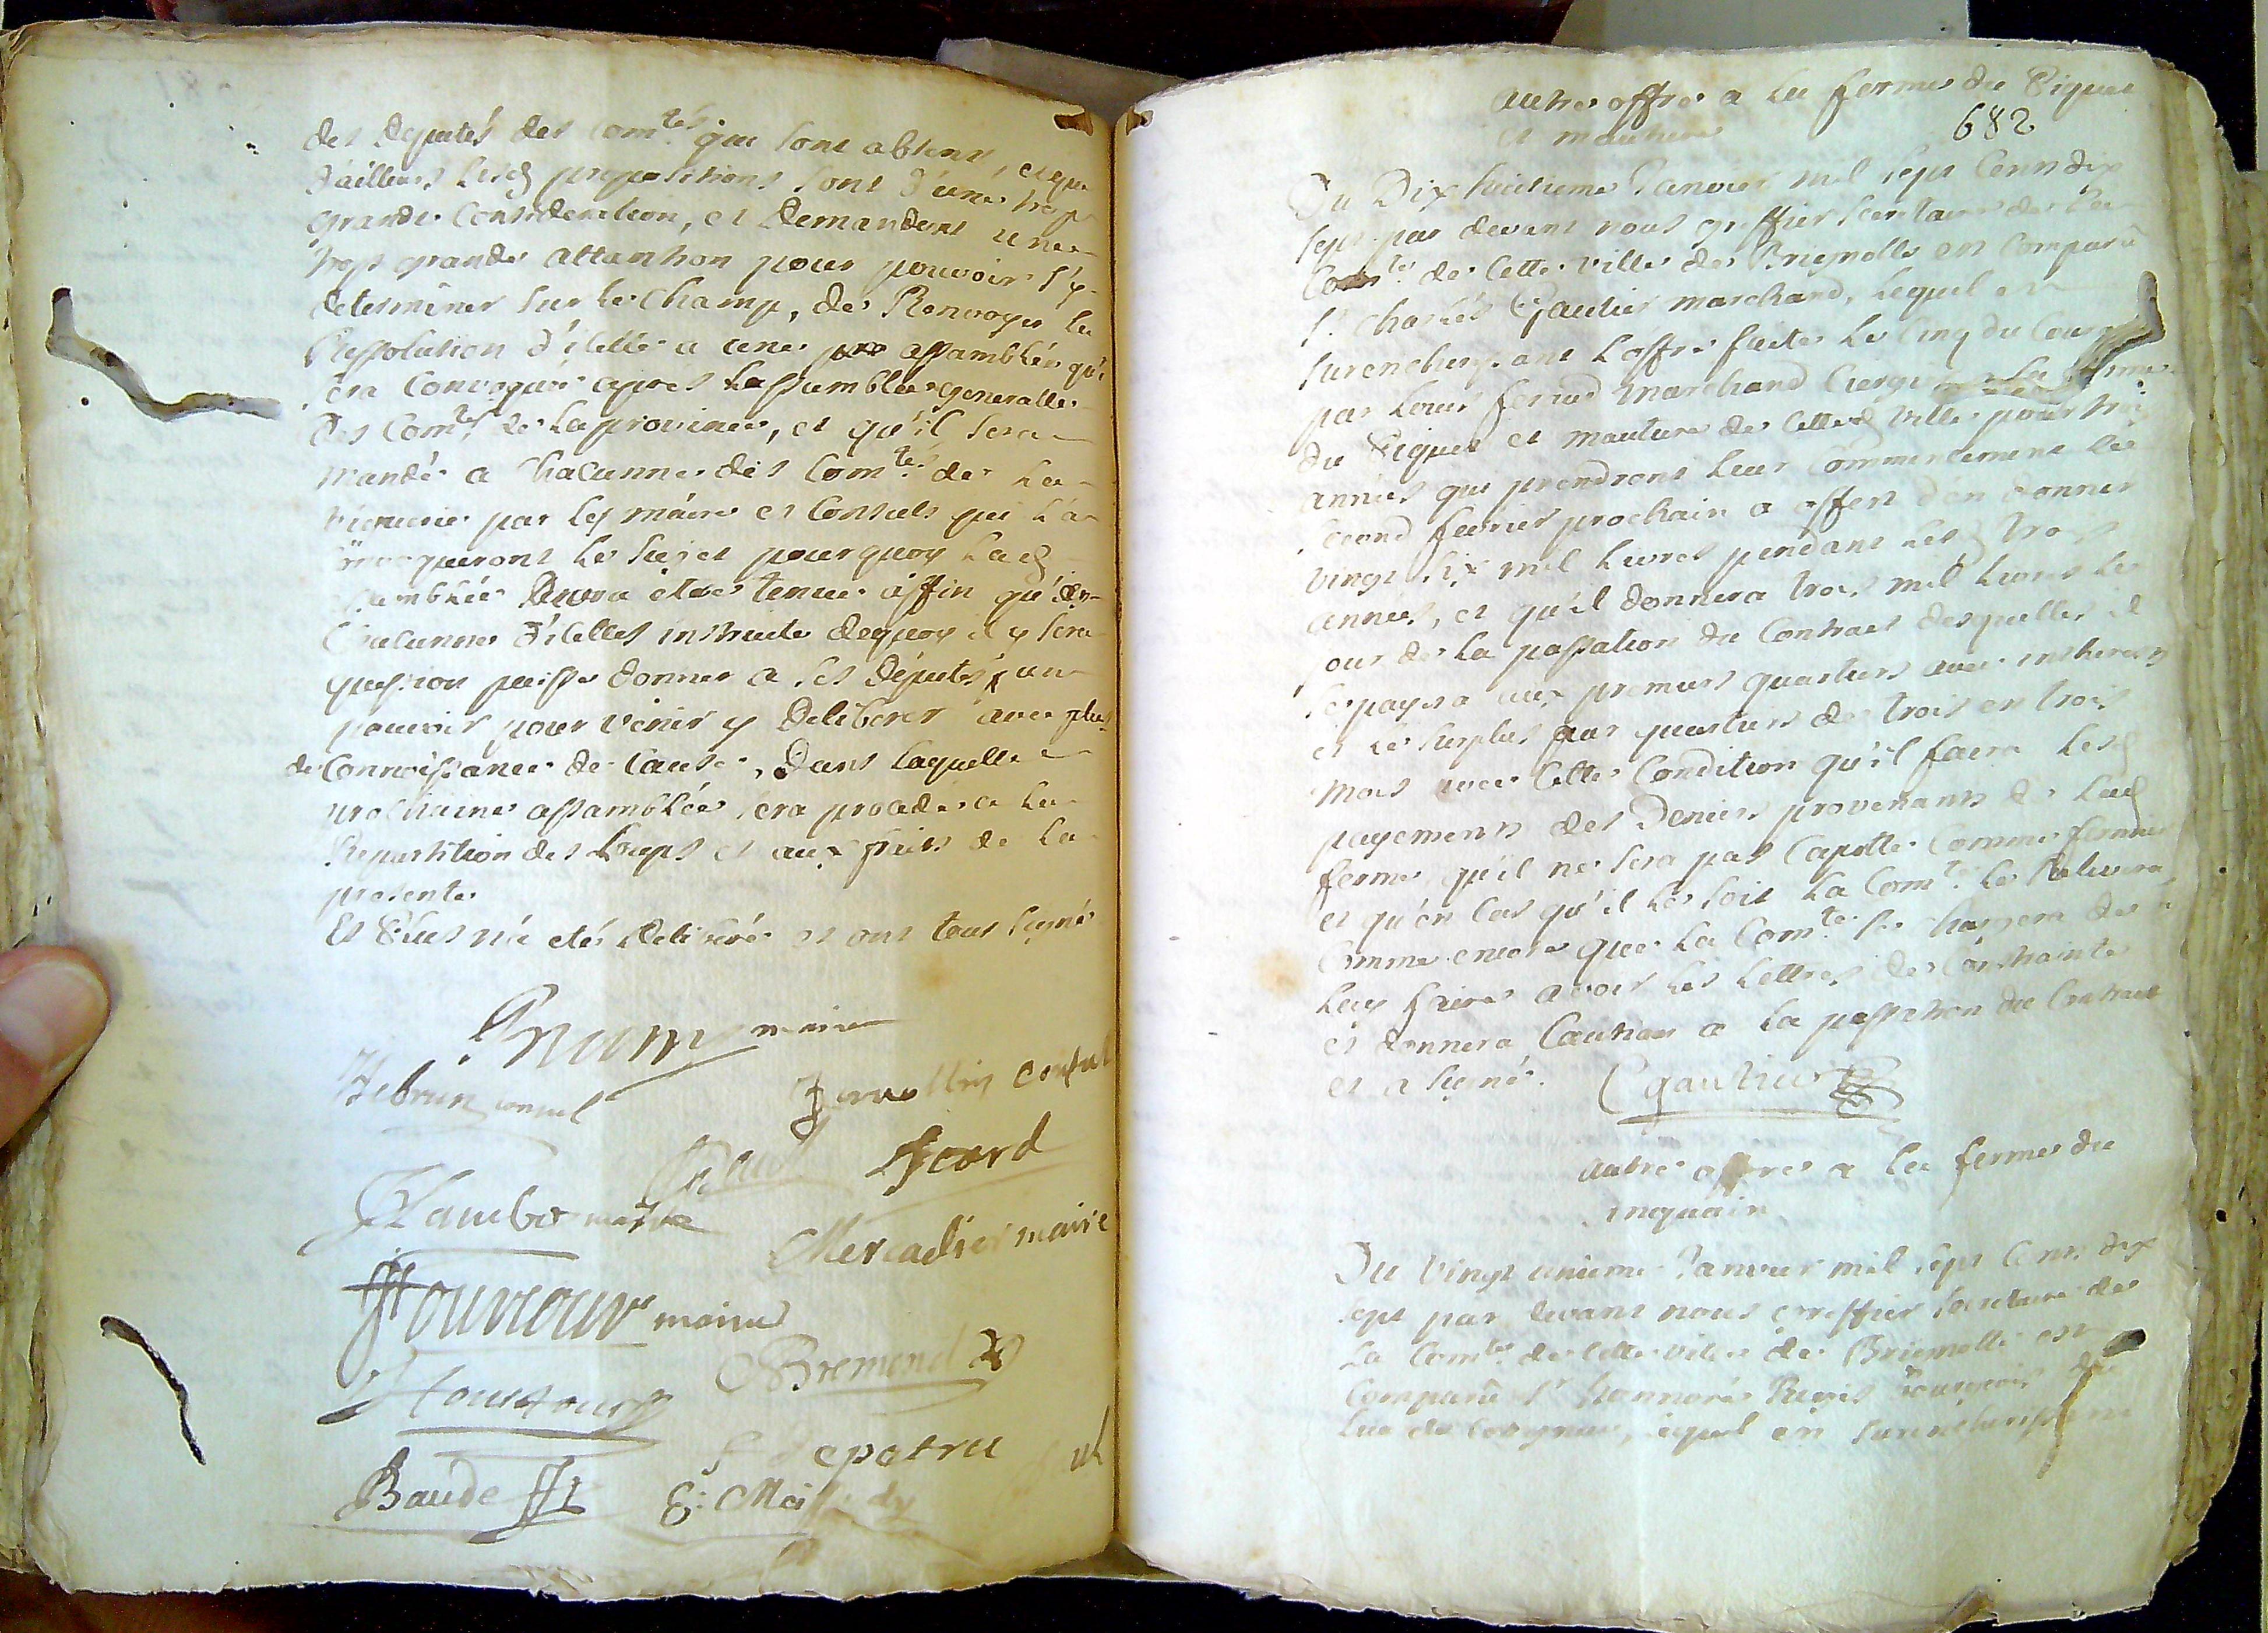 des deputés des Comtés qui sont absens, et que
d'ailleurs lesd propositions sont d'une trop
grande Consideration, et Demandent une
trop grande attantion pour pouvoir s'y
determiner sur le Champ, de Renvoyer la
Ressolution d'icelle a une assamblée qui
sera Convoquée apres l'assamblée generalle
Des Comtés de la province, et qu'il sera
mandé a Chacunne des Comtés de la
viguerie par les maire et Consuls qui
le sujet pourquoy lad
assamblée devra etre tenue affin que
Chacunne d'icelles instruite dequoy il y sera
question puisse donner a ses Députés un
pouvoir pour venir y Deliberer avec plus
de Connoissance de Cause, Dans laquelle
prochaine assamblée sera procedé a la
Repartition des Loups et aux frais de la
presente
Et Plus n'a eté deliberé et ont tous signé
maire
Lebrun consul
consul
Icard
maire
Mercadier maire
maire
Bremond
Baude
autre offre a la ferme du Piquet
et mouture
682
Du Dix huitieme Janvier mil sept Cent dix
sept par devant nous greffier secretaire de la
Comté de Cette ville de Brignolle est Comparû
Sr Charles Gautier marchand, lequel en
surencherissant L'offre faite le Cinq du Courant
par Louis marchand a la ferme
du Piquet et mouture de Cetted ville pour trois
années qui prendront leur Commencement le
second fevrier prochain a offert d'en donner
vingt six mil livres pendant lesd trois
années, et qu'il donnera trois mil livres le
jour de la passation du Contract desquelles il
se payera aux premiers quartiers avec
et le surplus par quartiers de trois en trois
Mois avec Cette Condition qu'il faira lesd
payements des Deniers provenants de lad
ferme, qu'il ne sera pas Capotté Comme fermier
et qu'en Cas qu'il le soit la Comté le Relevera,
Comme encore que la Comté se chargera de
luy faire avoir les lettres de Contrainte
et donnera Caution a la passation du Contract
et a signé.
Cgautier
autre offre a la ferme du
inquain
Du Vingt unieme Janvier mil sept Cent dix
sept par devant nous greffier secretaire de
la Comté de Cette ville de Brignolle est
Comparû Sr honnoré bourgeois
lequel en